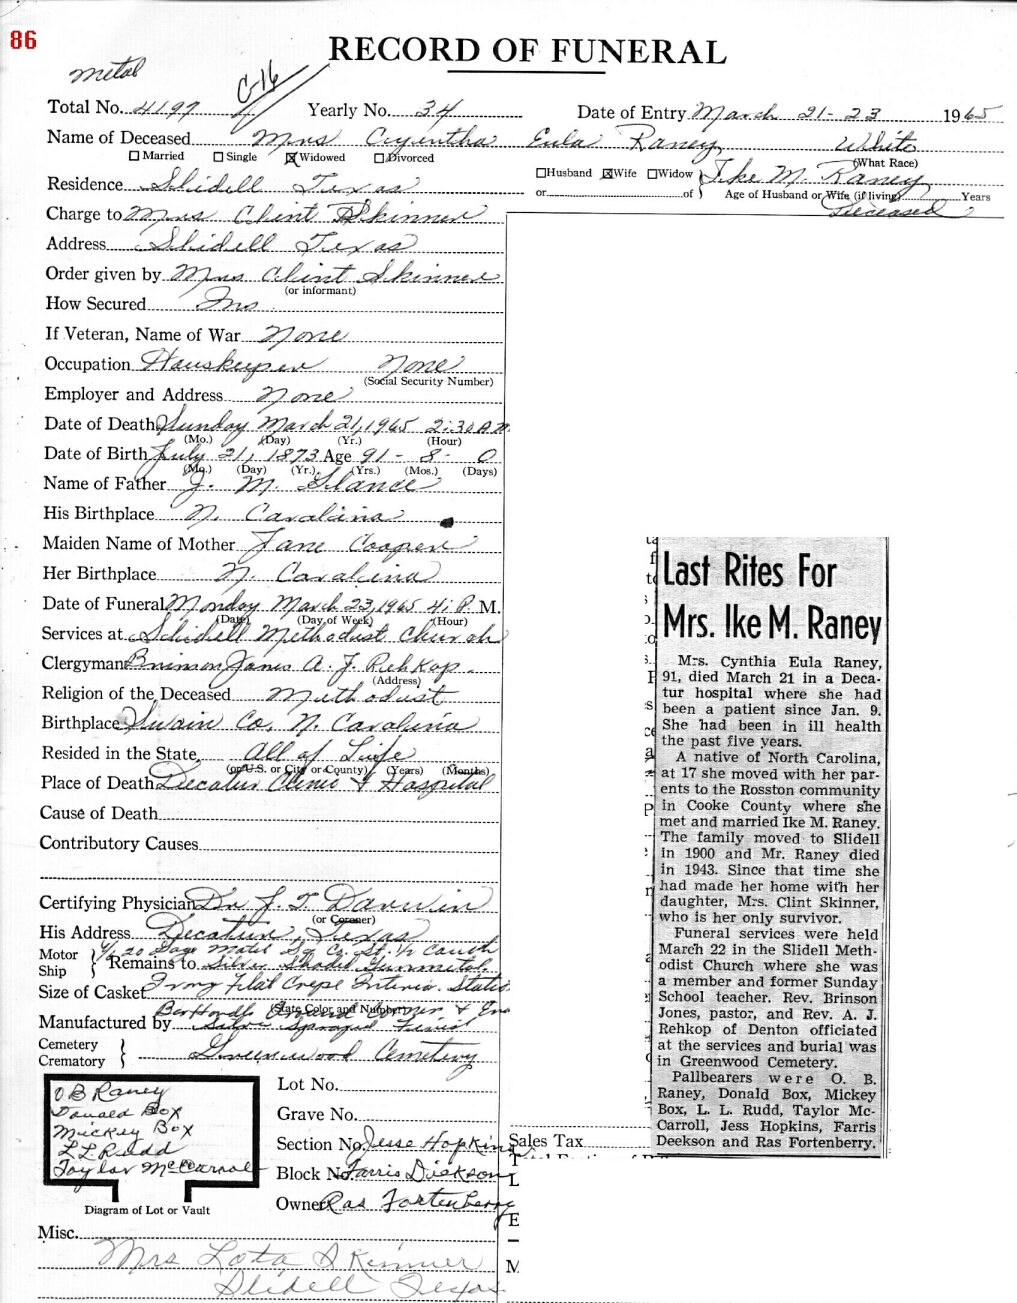 86
RECORD OF FUNERAL
Metal
C-16
Total No. 4197 Yearly No. 34 Date of Entry March 21-23 1965
Name of Deceased Mrs Cyyntha Eula Raney White
Married Single Widowed Divorced (What Race)
Husband Wife Widow Ike M. Raney
Residence Slidell Texas
or of Age of Husband or Wife (if living) Years
Deceased
Charge to Mrs Clint Skinner
Address Slidell Texas
Order given by Mrs Clint Skinner
(or informant)
How Secured Ins
If Veteran, Name of War None
Occupation Houskeeper None
(Social Security Number)
Employer and Address None
Date of Death Sunday March 21, 1965 2:30 A M.
(Mo.) (Day) (Yr.) (Hour)
Date of Birth July 21, 1873 Age 91 - 8 - 0
(Mo.) (Day) (Yr.) (Yrs.) (Mos.) (Days)
Name of Father J. M. Glance
His Birthplace N. Carolina
Maiden Name of Mother Jane Cooper
Her Birthplace N. Carolina
Date of Funeral Monday March 23, 1965 4: P. M.
(Date) (Day of Week) (Hour)
Services at Slidell Methodist Church
Clergyman Brinson Jones A. J. Rehkop.
(Address)
Religion of the Deceased Methodist
Birthplace Swain Co, N. Carolina
Resided in the State, All of Life
(or U.S. or City or County) (Years) (Months)
Place of Death Decatur Clinic & Hospital
Cause of Death
Contributory Causes
Certifying Physician Dr J. T. Darwin
(or Coroner)
His Address Decatur, Texas
Motor
Ship Remains to Silver Shaded Gunmetal.
6/6 20 Gage Metal Sq Co.
Size of Casket Ivory Flat Crepe Interior.
(State Color and Number)
Manufactured by Silver Sprayed Finish
Cemetery
Crematory Greenwood Cemetery
O B Raney
Donald Box
Mickey Box
L L Rudd
Taylor McCarroll
Diagram of Lot or Vault
Lot No.
Grave No.
Section No. Jesse Hopkins
Block No. Farris Dickson
Owner Ras Fortenberry
Sales Tax
Misc.
Mrs Lota Skinner
Slidell Texas
Last Rites For
Mrs. Ike M. Raney
Mrs. Cynthia Eula Raney,
91, died March 21 in a Deca-
tur hospital where she had
been a patient since Jan. 9.
She had been in ill health
the past five years.
A native of North Carolina,
at 17 she moved with her par-
ents to the Rosston community
in Cooke County where she
met and married Ike M. Raney.
The family moved to Slidell
in 1900 and Mr. Raney died
in 1943. Since that time she
had made her home with her
daughter, Mrs. Clint Skinner,
who is her only survivor.
Funeral services were held
March 22 in the Slidell Meth-
odist Church where she was
a member and former Sunday
School teacher. Rev. Brinson
Jones, pastor, and Rev. A. J.
Rehkop of Denton officiated
at the services and burial was
in Greenwood Cemetery.
Pallbearers were O. B.
Raney, Donald Box, Mickey
Box, L. L. Rudd, Taylor Mc-
Carroll, Jess Hopkins, Farris
Deekson and Ras Fortenberry.